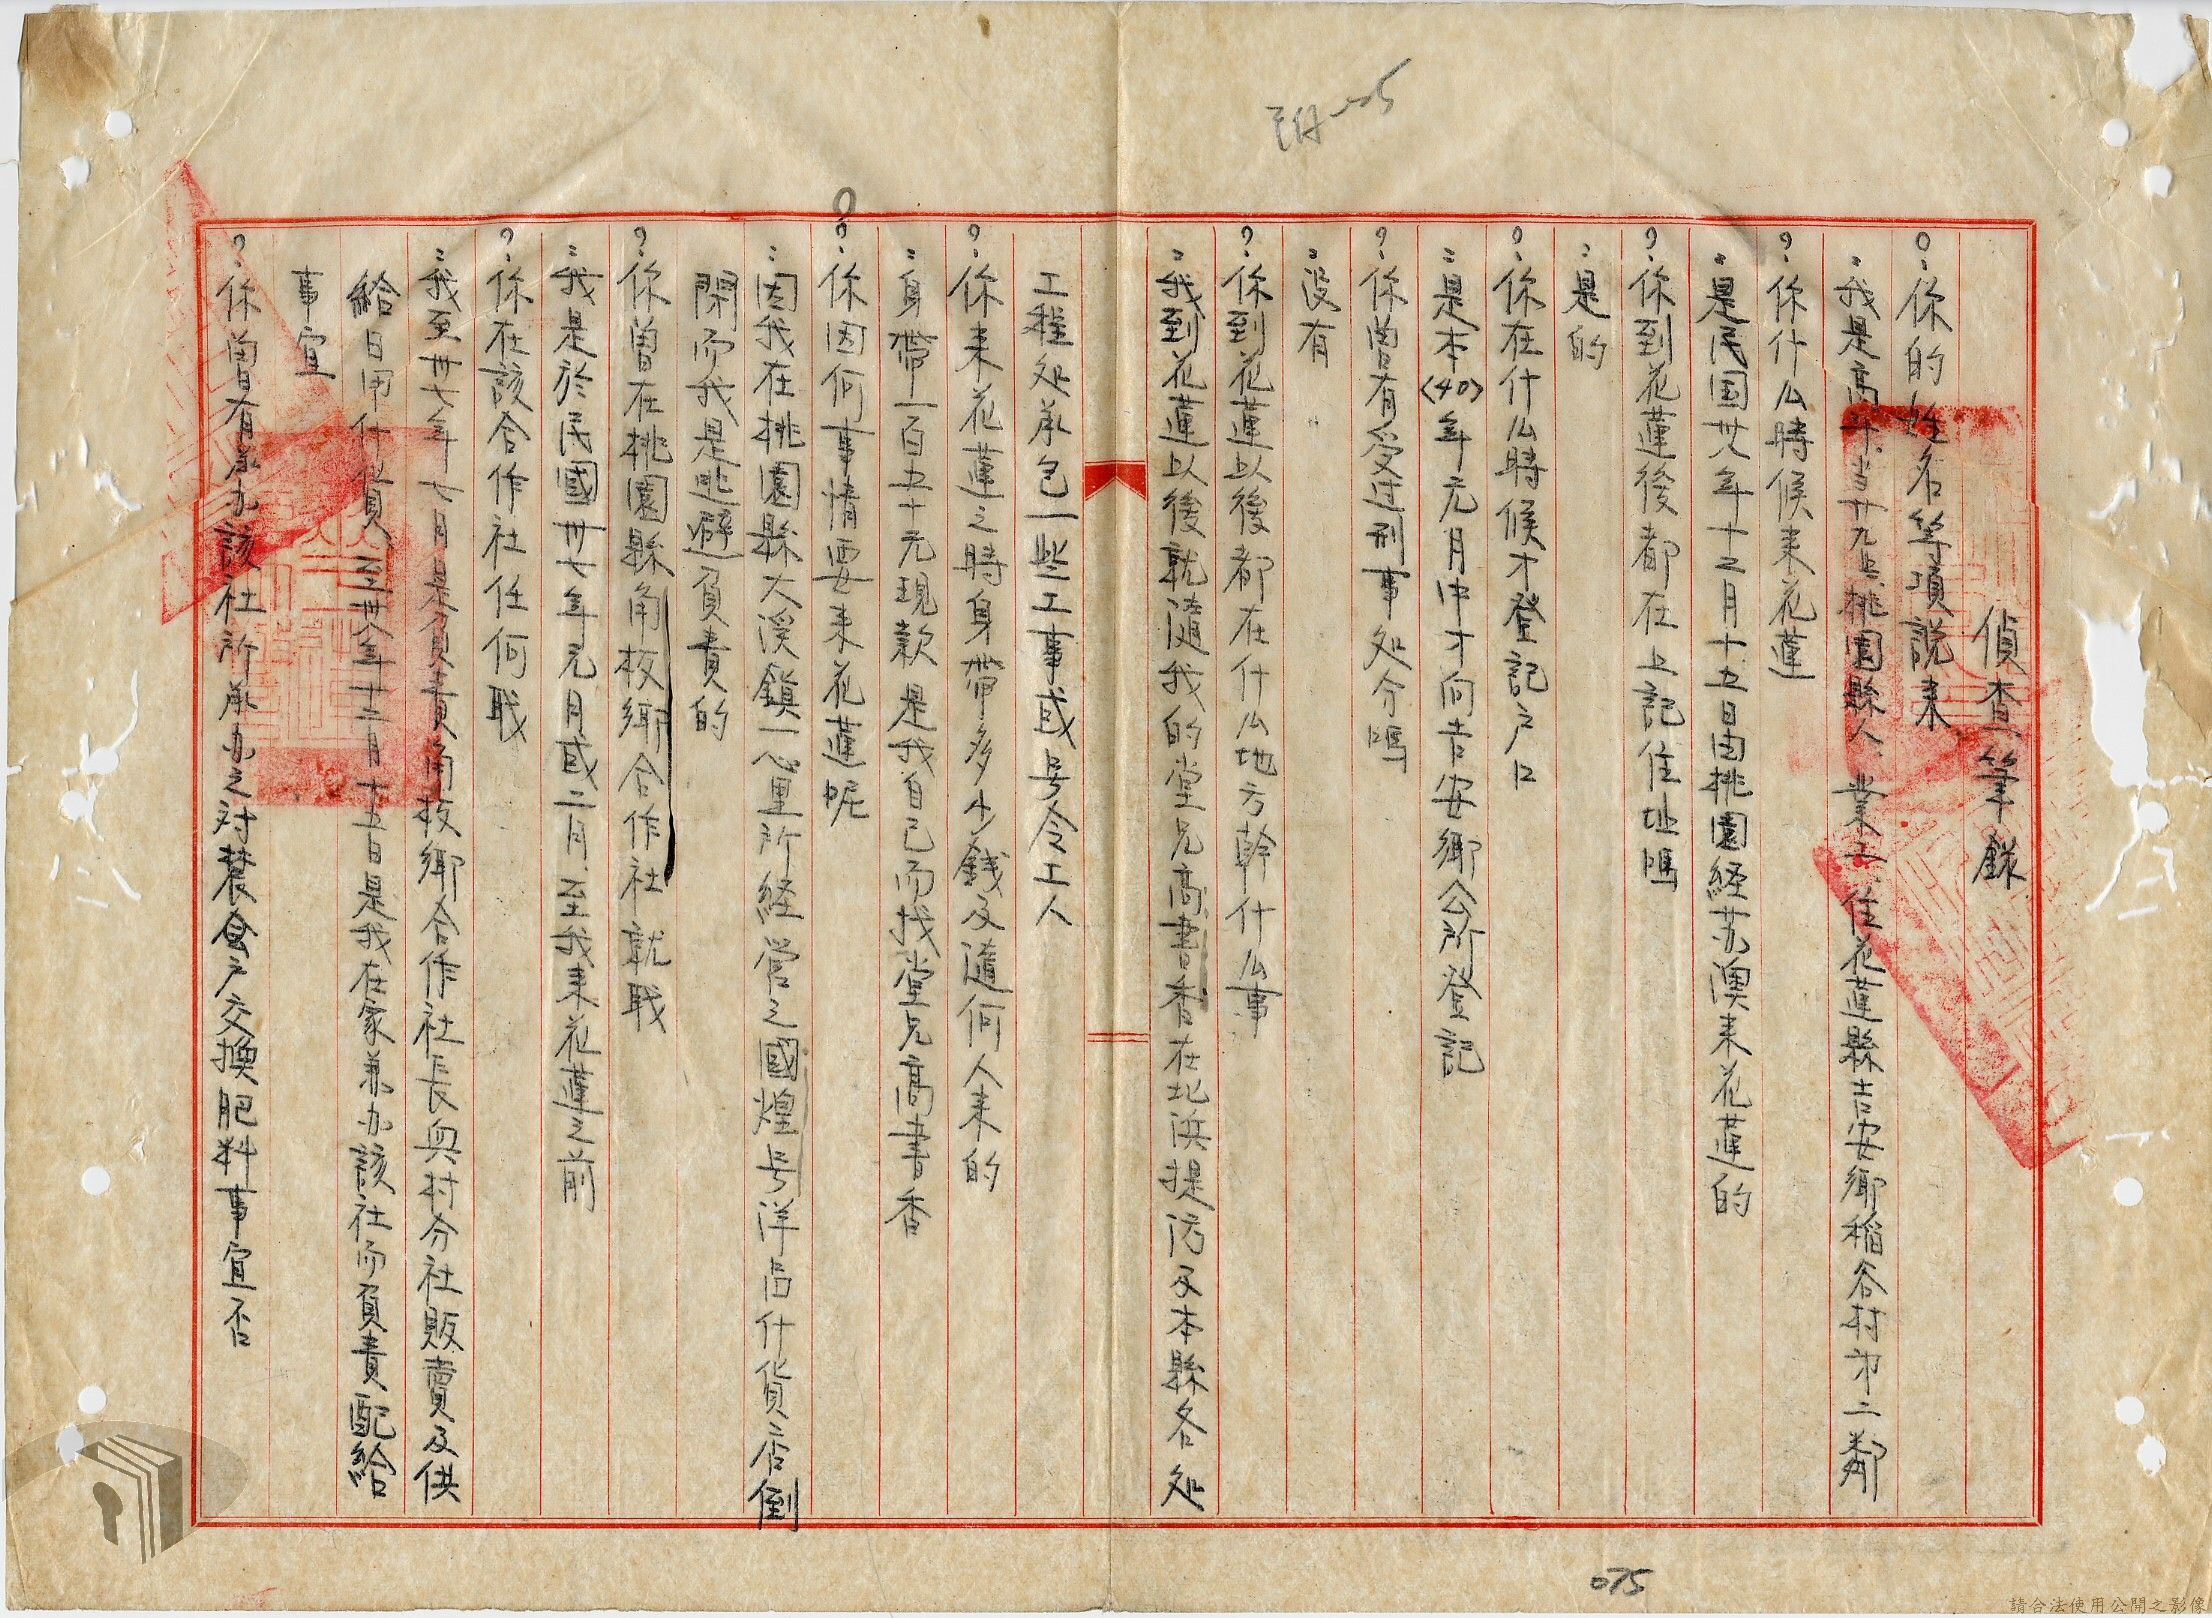 偵查筆錄
？：你的姓名等項說来
：我是高 廿九岁桃園縣人、業工、住花蓮縣吉安鄉稲谷村㐧二鄰
？：你什么時候来花蓮
：是民国卅八年十二月十五日由桃園経苏澳来花蓮的
？：你到花蓮後都在上記住址嗎
：是的
？：你在什么時候才登記户口
：是本(40)年元月中才向吉安鄉公所登記
？：你曽有受过刑事处分嗎
：没有
？：你到花蓮以後都在什么地方幹什么事
：我到花蓮以後就随我的堂兄高書香在北浜提防及本縣各处
工程处承包一些工事或号令工人
？：你来花蓮之時身帶多少錢及隨何人来的
：身帶一百五十元現款是我自己而找堂兄高書香
？：你因何事情要来花蓮呢
：因我在桃園縣大溪鎮一心里所経営之國煌号洋品什貨店倒
閉而我是逃避負責的
？：你曽在桃園縣角板鄉合作社就职
：我是於民國卅七年元月或二月至我来花蓮之前
？：你在該合作社任何职
：我至卅七年七月是負責角板鄉合作社長與村分社販賣及供
給日用什貨、至卅八年十二月十五日是我在家兼办該社而負責配給
事宜
？：你曽有承办該社所承办之对農会户交換肥料事宜否
075
請合法使用公開之影像